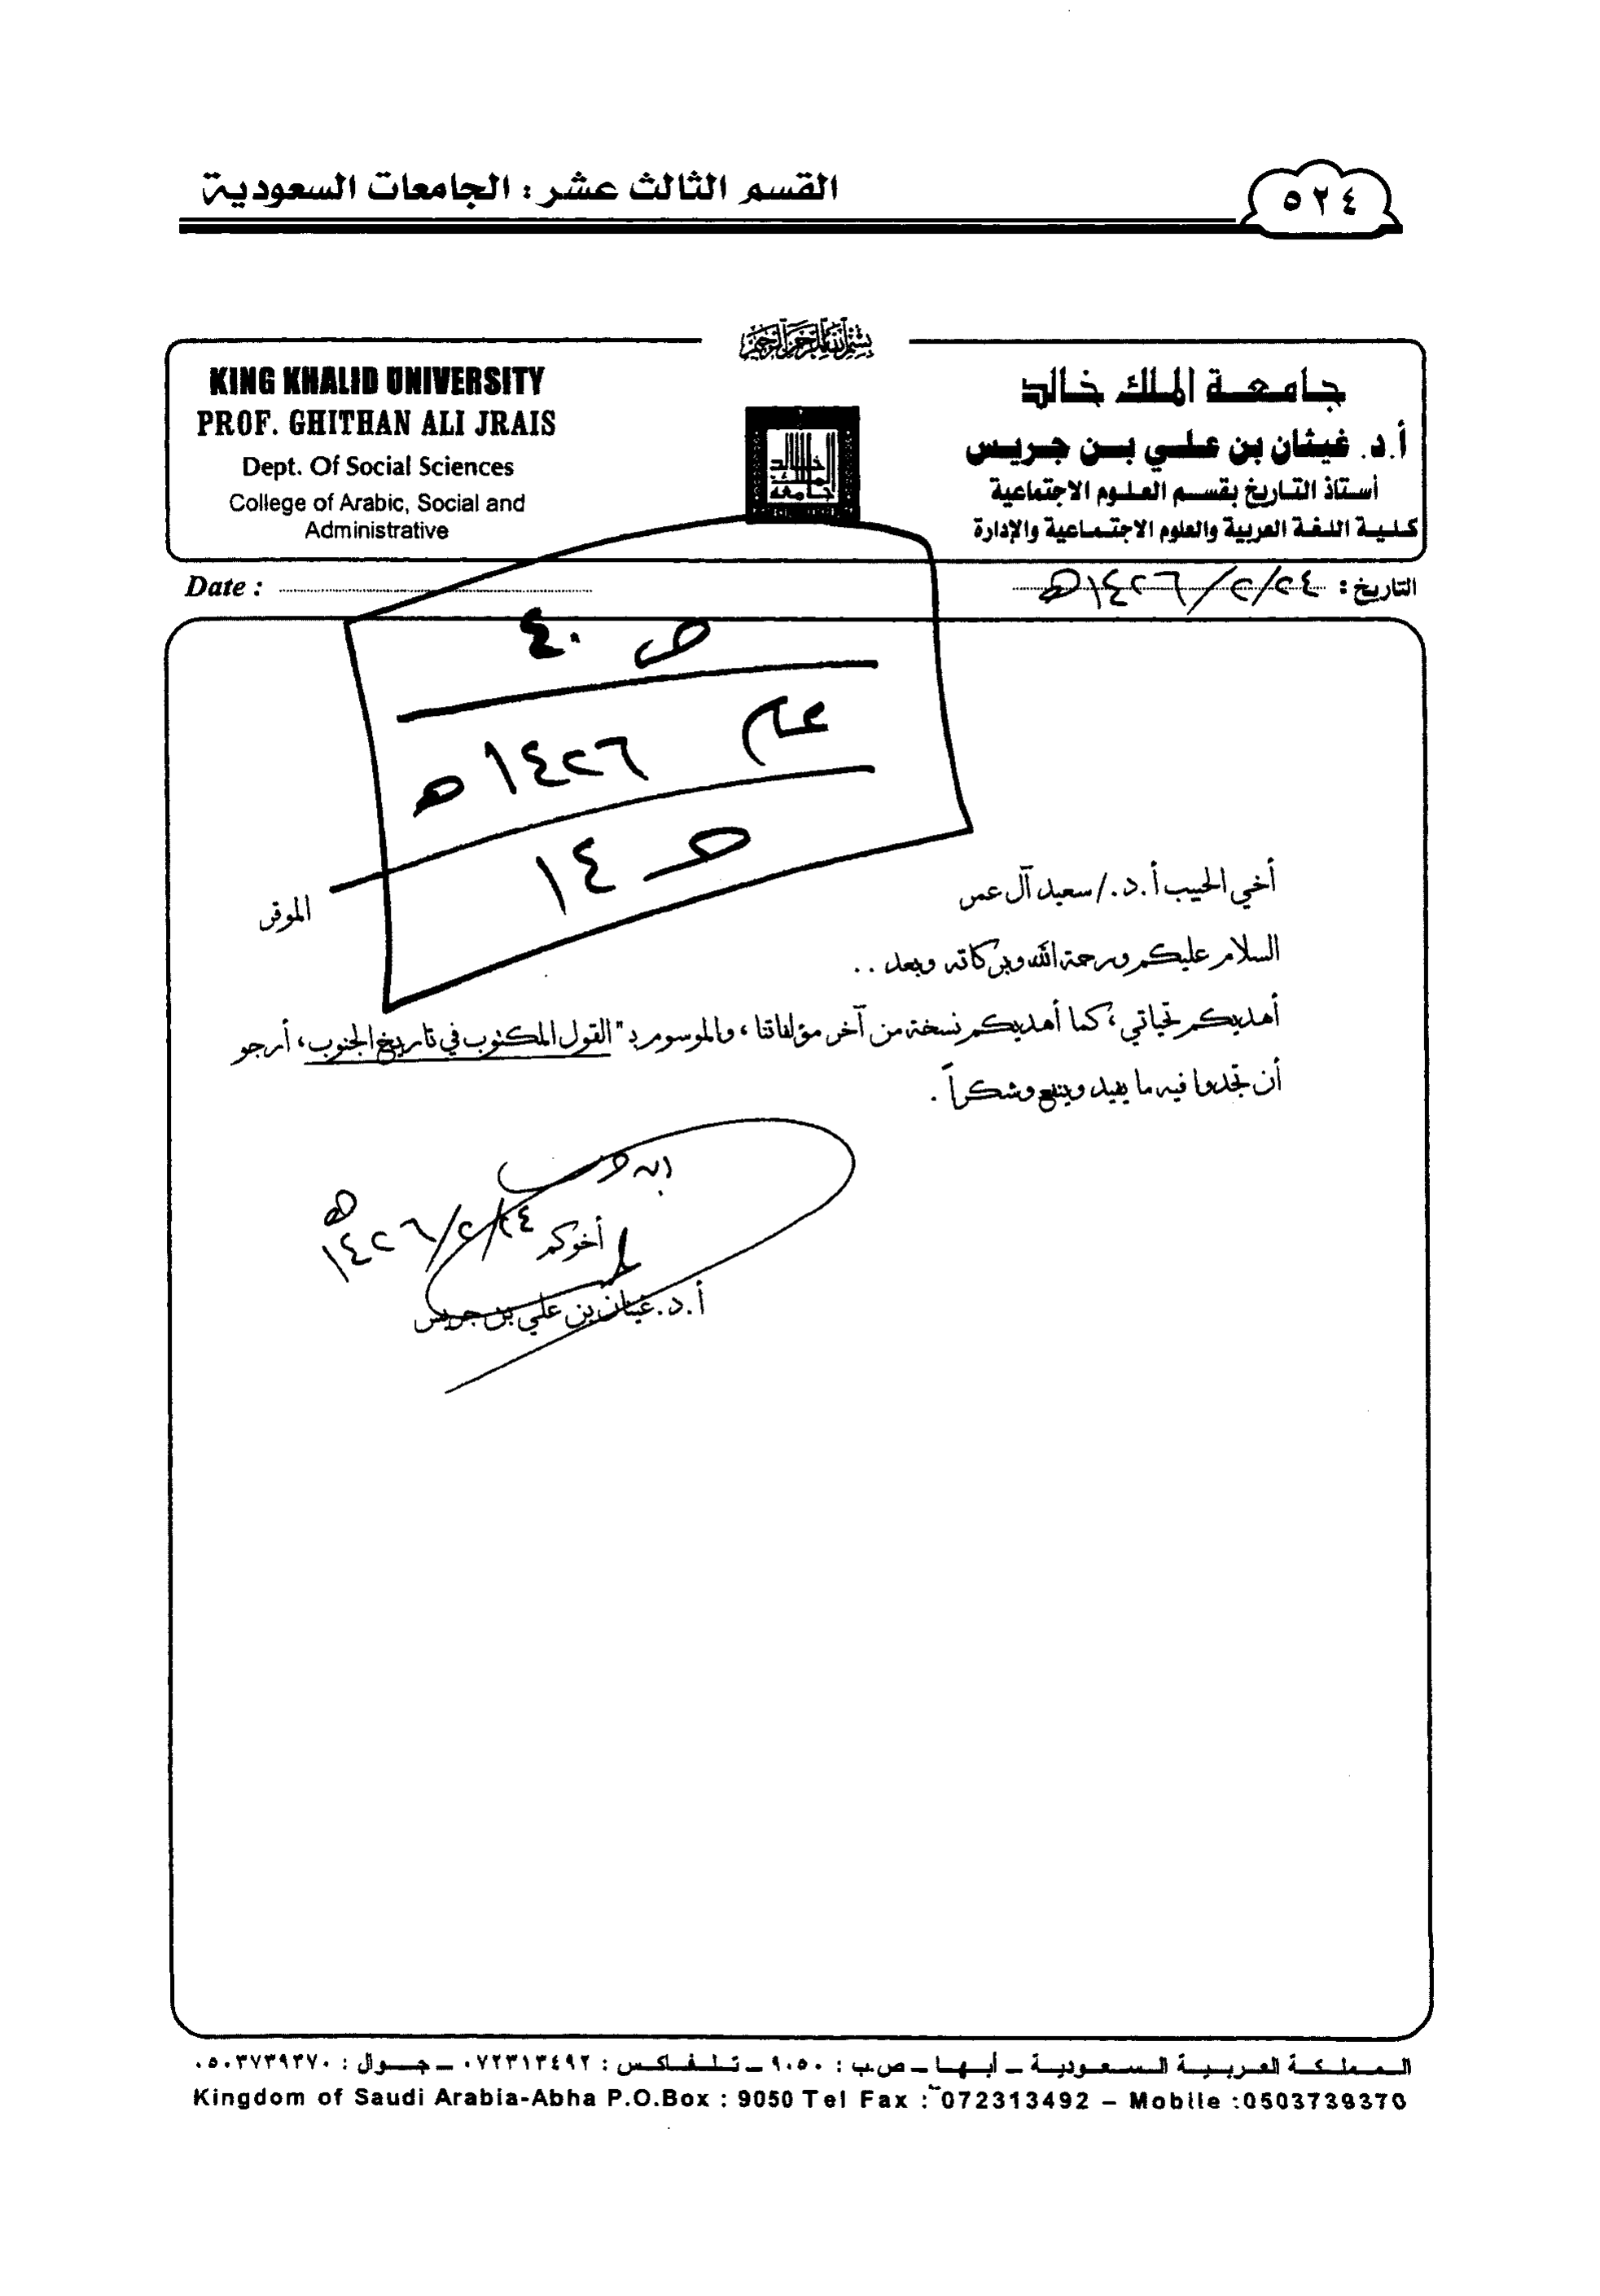 القسم الثالث عشر : الجامعات السعودية
٥٢٤
بسم الله الرحمن الرحيم
KING KHALID UNIVERSITY
PROF. GHITHAN ALI JRAIS
Dept. Of Social Sciences
College of Arabic, Social and
Administrative
جامعة الملك خالد
جامعة الملك خالد
أ.د. غيثان بن علي بن جريس
أستاذ التاريخ بقسم العلوم الاجتماعية
كلية اللغة العربية والعلوم الاجتماعية والإدارة
Date :
التاريخ : ٢٤/٢/١٤٢٦هـ
ص ٤٠
عام ١٤٢٦هـ
حـ ١٤
أخي الحبيب أ.د./سعيد آل عمر الموقر
السلام عليكم ورحمة الله وبركاته وبعد ..
أهديكم تحياتي، كما أهديكم نسخة من آخر مؤلفاتنا، والموسوم بـ" القول المكتوب في تاريخ الجنوب، أرجو
أن تجدوا فيه ما يفيد وينفع وشكراً .
أخوكم
٢٤/٢/١٤٢٦هـ
أ.د.غيثان بن علي بن جريس
المملكة العربية السعودية – أبها – ص.ب : ٩٠٥٠ – تلفاكس : ٠٧٢٣١٣٤٩٢ – جوال : ٠٥٠٣٧٣٩٣٧٠
Kingdom of Saudi Arabia-Abha P.O.Box : 9050 Tel Fax : 072313492 – Mobile :0503739370